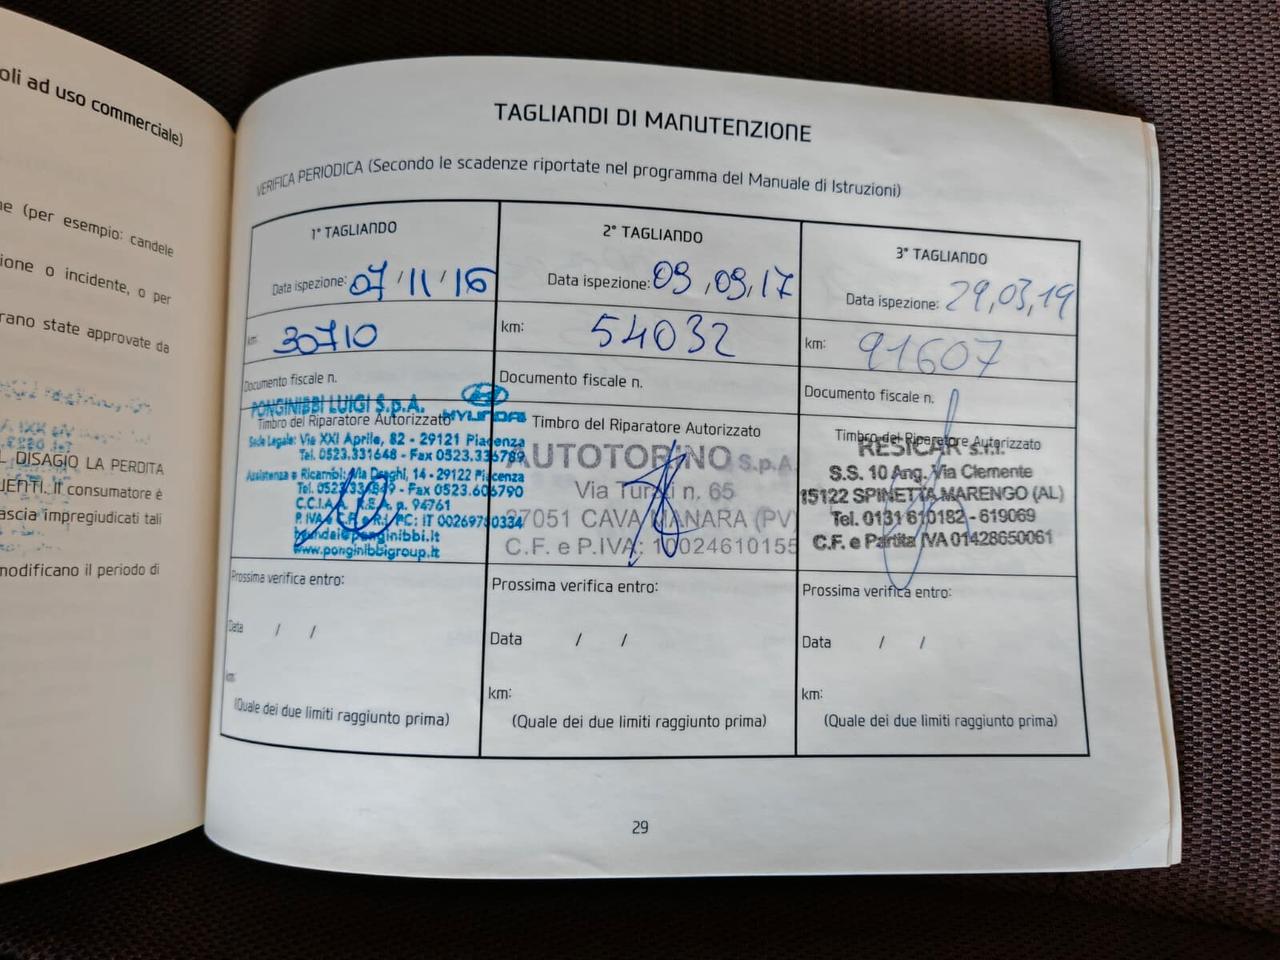 oli ad uso commerciale)
ne (per esempio: candele
ione o incidente, o per
rano state approvate da
L DISAGIO LA PERDITA
UENTI. Il consumatore è
ascia impregiudicati tali
modificano il periodo di
TAGLIANDI DI MANUTENZIONE
VERIFICA PERIODICA (Secondo le scadenze riportate nel programma del Manuale di Istruzioni)
1° TAGLIANDO
Data ispezione: 07/11/16
km: 30710
Documento fiscale n.
PONGINIBBI LUIGI S.p.A. HYUNDAI
Timbro del Riparatore Autorizzato
Sede Legale: Via XXI Aprile, 82 - 29121 Piacenza
Tel. 0523.331648 - Fax 0523.336789
Assistenza e Ricambi: Via Draghi, 14 - 29122 Piacenza
Fax 0523.606790
C.C.I.A.A. R.E.A. n. 94761
PC: IT 00269780334
hyundai@ponginibbi.it
www.ponginibbigroup.it
Prossima verifica entro:
Data / /
km:
(Quale dei due limiti raggiunto prima)
2° TAGLIANDO
Data ispezione: 09,09,17
km: 54032
Documento fiscale n.
Timbro del Riparatore Autorizzato
AUTOTORINO S.p.A.
Via Turati n. 65
27051 CAVA MANARA (PV)
C.F. e P.IVA: 10024610155
Prossima verifica entro:
Data / /
km:
(Quale dei due limiti raggiunto prima)
3° TAGLIANDO
Data ispezione: 29,03,19
km: 91607
Documento fiscale n.
Timbro del Riparatore Autorizzato
RESICAR s.r.l.
S.S. 10 Ang. Via Clemente
15122 SPINETTA MARENGO (AL)
Tel. 0131 610182 - 619069
C.F. e Partita IVA 01428650061
Prossima verifica entro:
Data / /
km:
(Quale dei due limiti raggiunto prima)
29